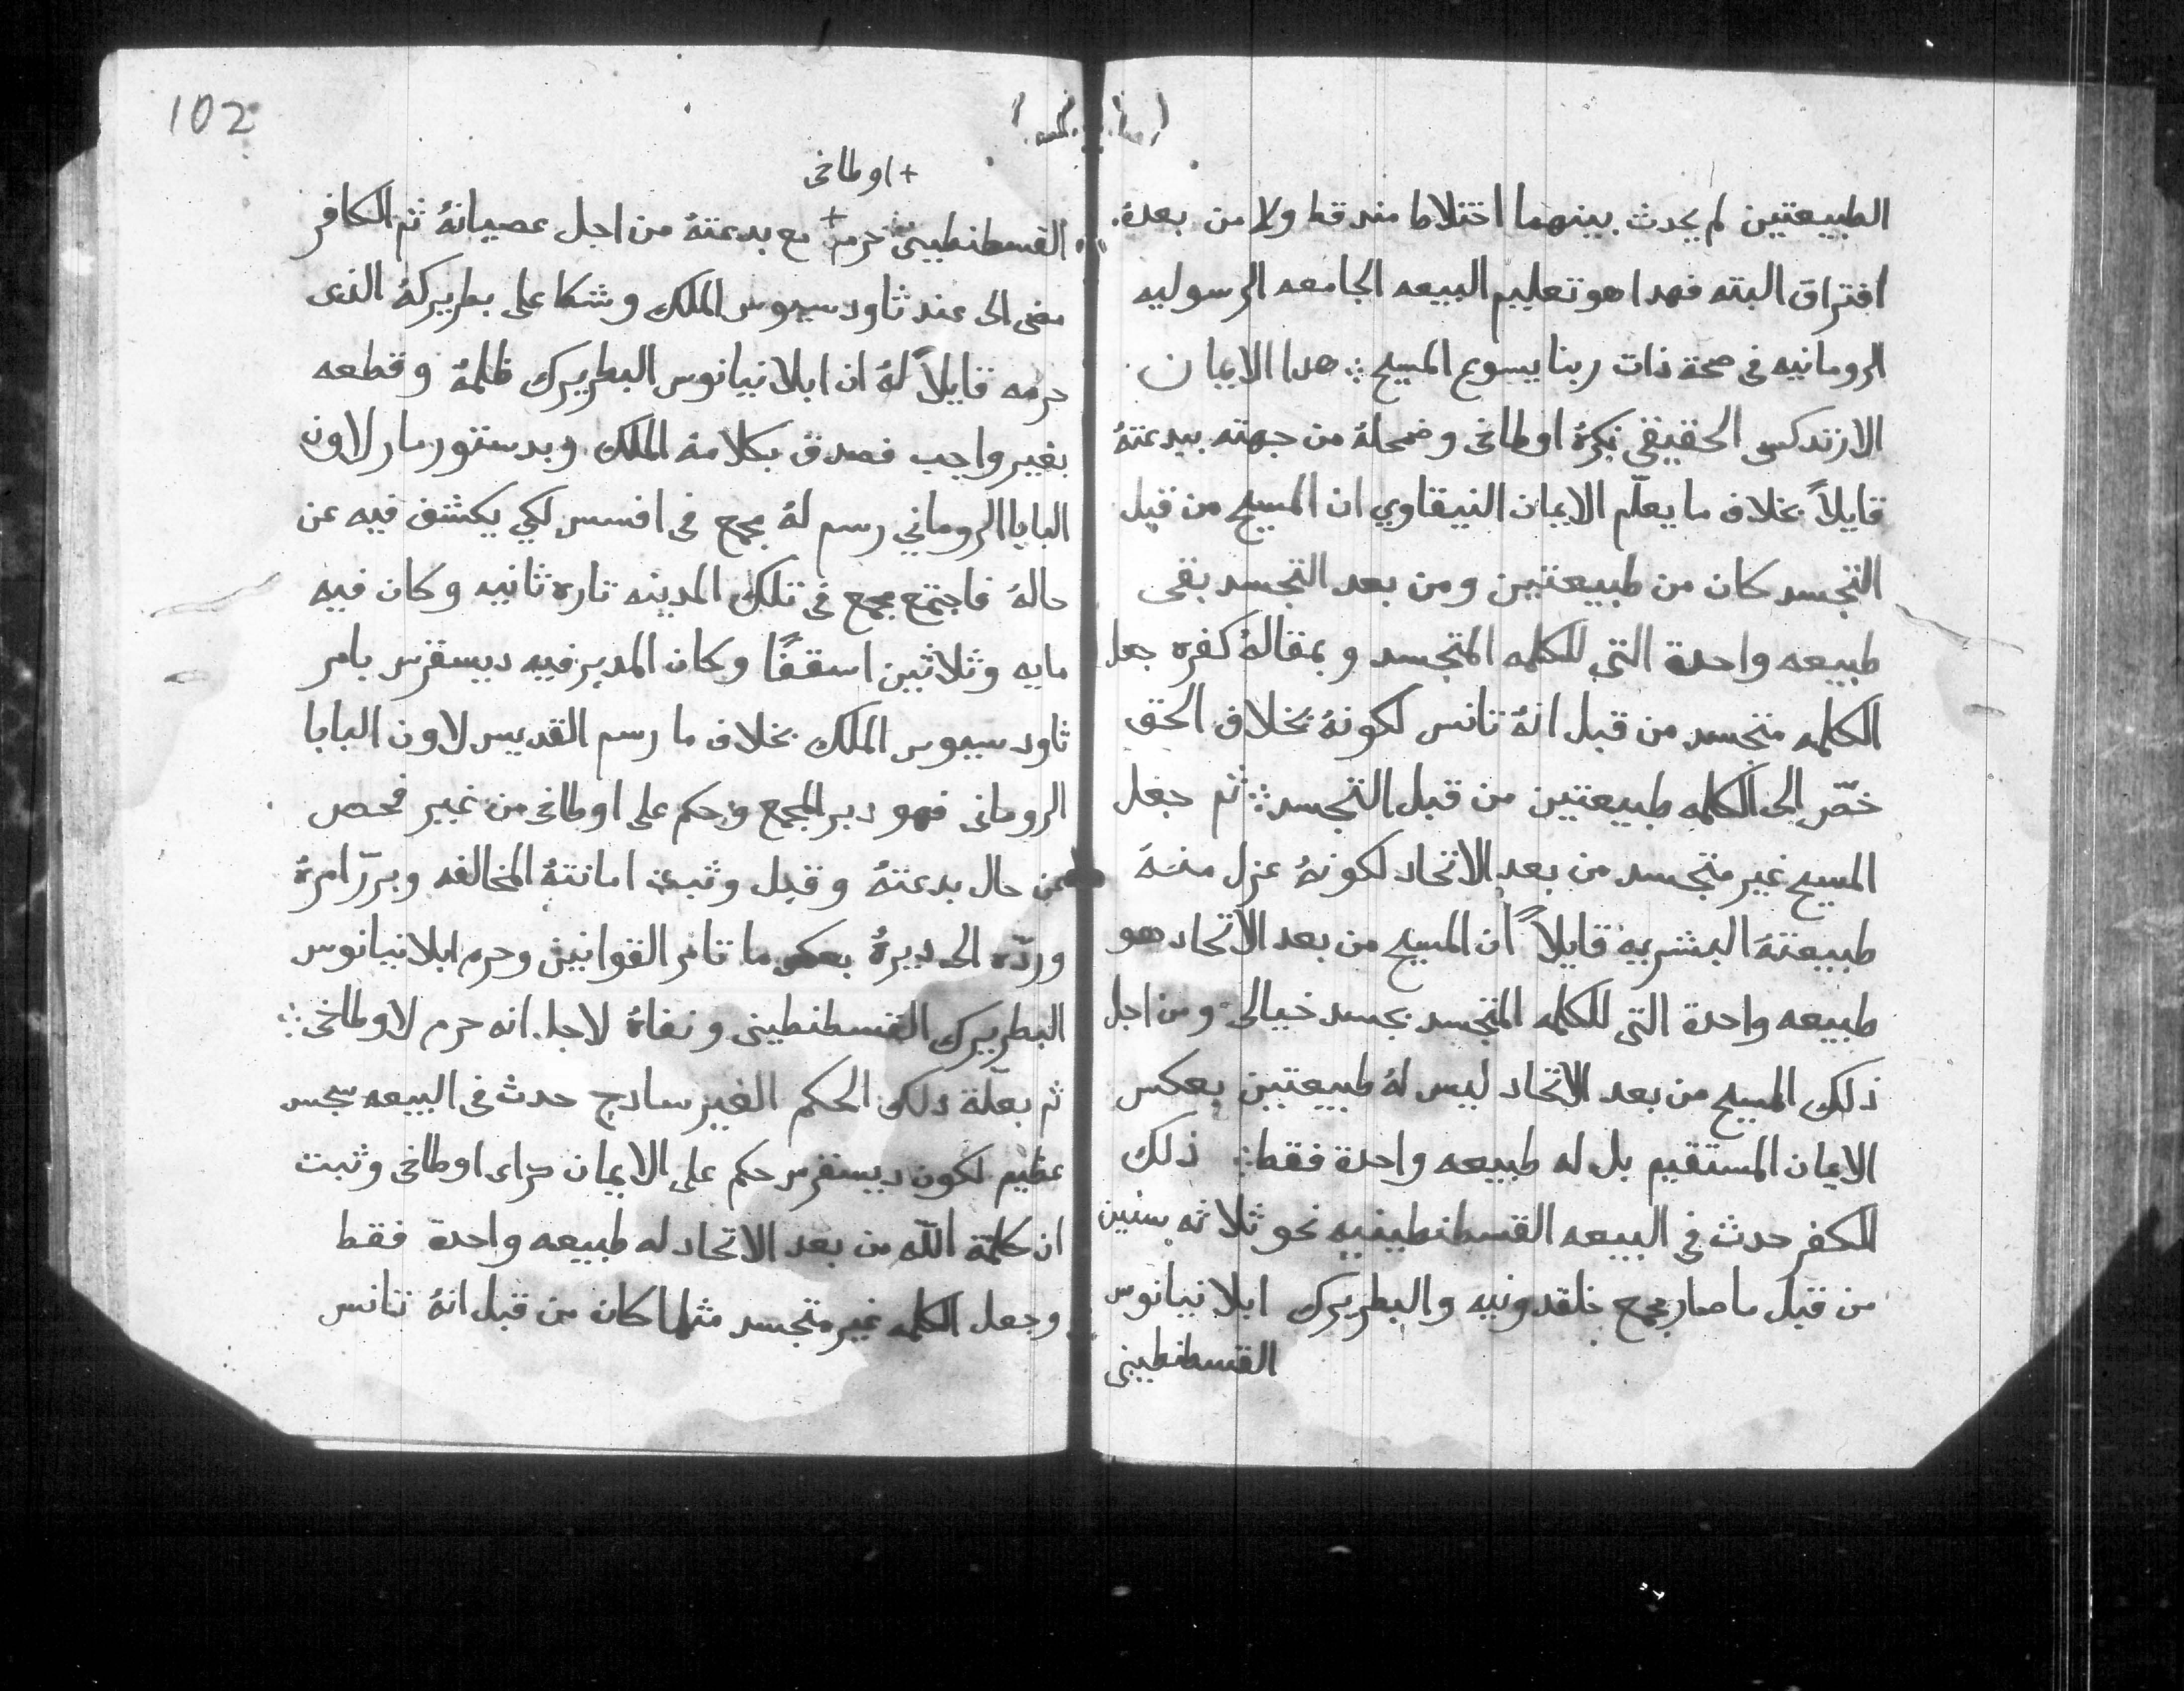 الطبيعتين لم يحدث بينهما اختلاط منذ قط ولا من بعدة
افتراق البته فهدا هو تعليم البيعه الجامعه الرسوليه
الرومانيه فى صحة ذات ربنا يسوع المسيح ∴ هدا الايمان
الارتدكسى الحقيقي نكرهُ اوطاخى وضمحلهُ من جهته ببدعتهُ
قايلاً بخلاف ما يعلّم الايمان النيقاوي ان المسيح من قبل
التجسد كان من طبيعتين ومن بعد التجسد بقى
طبيعه واحدة التى للكلمه المتجسد وبمقالهُ كفره جعل
الكلمه متجسد من قبل انهُ تانس لكونهُ بخلاف الحق
خصّ الى الكلمه طبيعتين من قبل التجسد ∴ ثم جعل
المسيح غير متجسد من بعد الاتحاد لكونهُ عزل منهُ
طبيعتهُ البشريه قايلاً ان المسيح من بعد الاتحاد هو
طبيعه واحدة التى للكلمه المتجسد بجسد خيالى ومن اجل
ذلك المسيح من بعد الاتحاد ليس لهُ طبيعتين بعكس
الايمان المستقيم بل له طبيعه واحدة فقط ∴ ذلك
الكفر حدث في البيعه القسطنطينيه نحو ثلاثه سنين
من قبل ما صار مجمع خلقدونيه والبطريرك ابلانيانوس
القسطنطينى
102
+ اوطاخى
القسطنطينى حرم + مع بدعتهُ من اجل عصيانهُ ثم الكافر
مضى الى عند ثاودسيوس الملك وشكا على بطريركهُ الذى
حرمه قايلاً لهُ ان ابلانيانوس البطريرك ظلمهُ وقطعه
بغير واجب فصدق بكلامهُ الملك وبدستور مار لاون
البابا الروماني رسم لهُ مجمع فى افسس لكي يكشف فيه عن
حالهُ فاجتمع مجمع فى تلك المدينه تاره ثانيه وكان فيه
مايه وثلاثين اسقفًا وكان المدبر فيه ديسقرس بامر
ثاودسيوس الملك بخلاف ما رسم القديس لاون البابا
الرومانى فهو دبر المجمع وحكم على اوطاخى من غير فحص
عن حال بدعتهُ وقبل وثبت امانتهُ المخالفه وبرّر امرهُ
وردّه الى ديرهُ بعكس ما تامر القوانين وحرم ابلانيانوس
البطريرك القسطنطينى ونفاهُ لاجل انه حرم لاوطاخى ∴
ثم بعلّة ذلك الحكم الغير سادج حدث فى البيعه سجس
عظيم لكون ديسقرس حكم على الايمان براى اوطاخى وثبت
ان كلمة اللّه من بعد الاتحاد له طبيعه واحدة فقط
وجعل الكلمه غير متجسد مثلما كان من قبل انهُ تانس